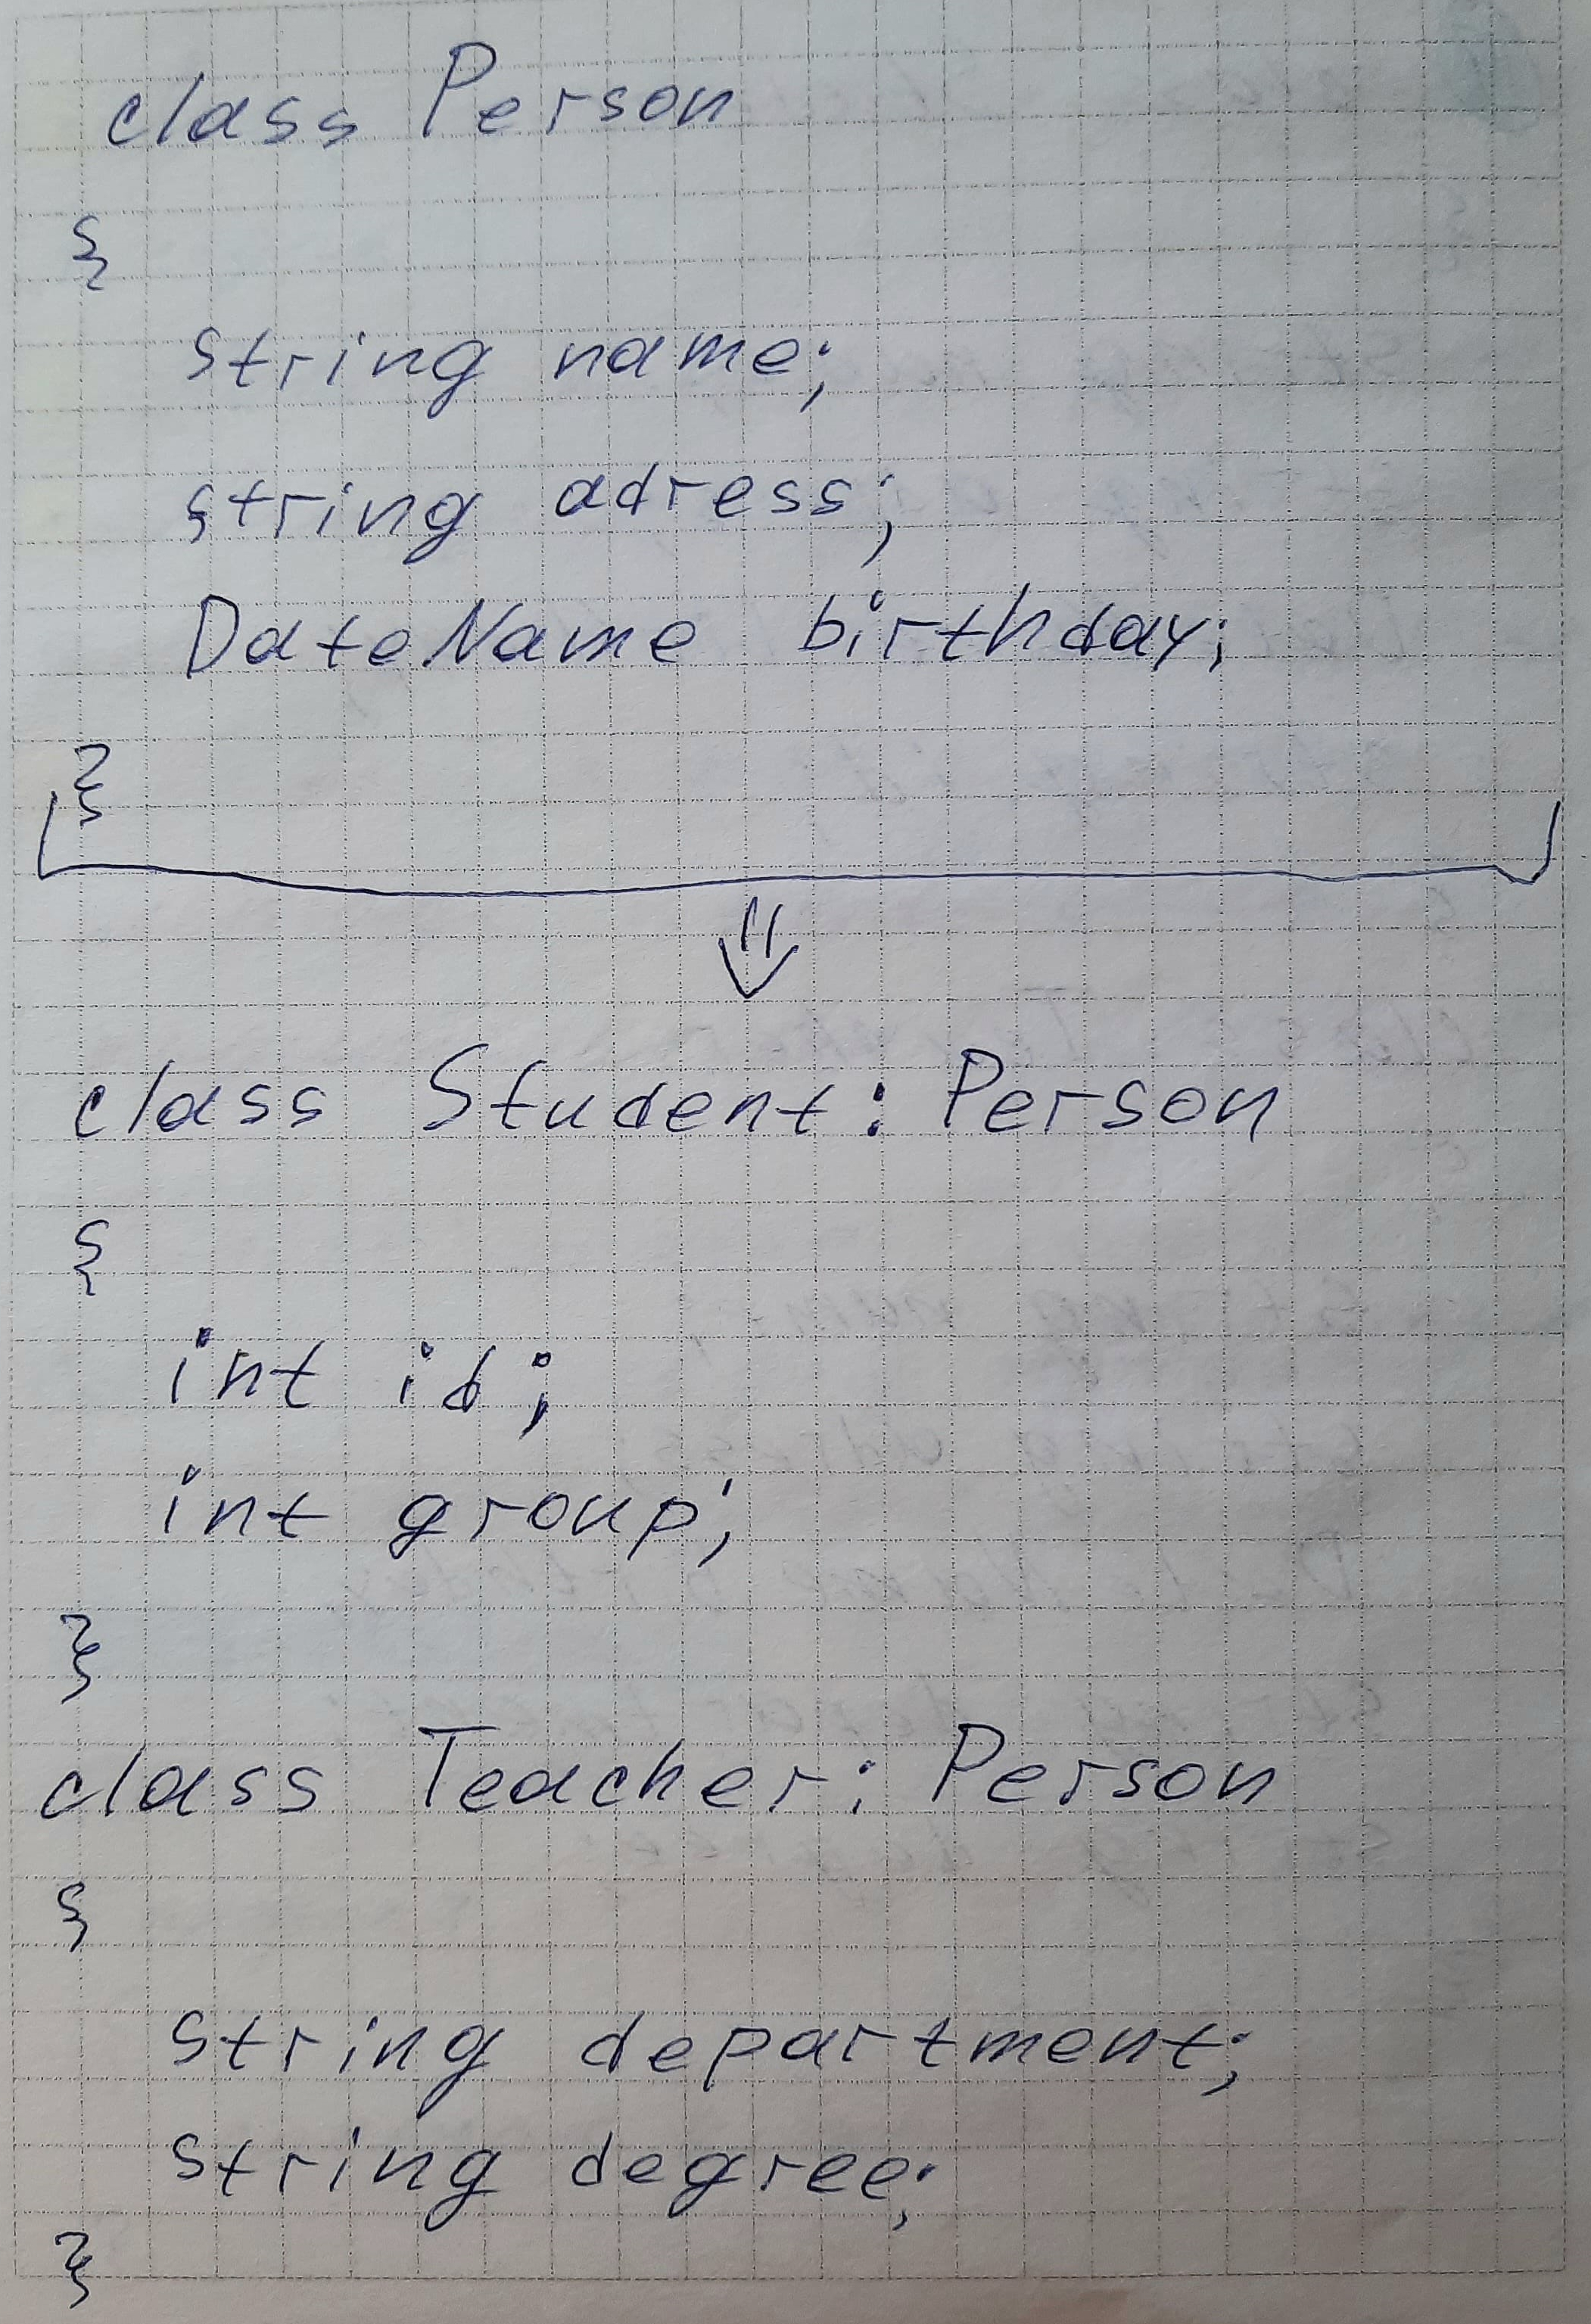 class Person
{
string name;
string adress;
DateName birthday;
}
class Student: Person
{
int id;
int group;
}
class Teacher: Person
{
string department;
string degree;
}